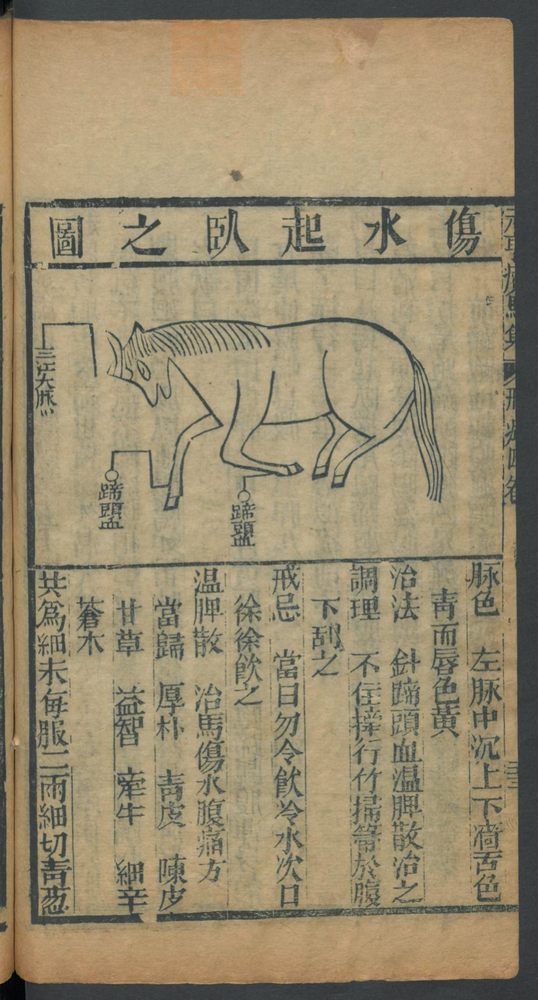 傷水起臥之圖
三江大脉
蹄盬
蹄盬
脉色　左脉中沉上下齒舌色
青而唇色黃
治法　針蹄頭血温脾散治之
調理　不住擇行竹掃箒於腹
下刮之
戒忌　當日勿令飲冷水次日
徐徐飲之
温脾散　治馬傷水腹痛方
當歸　厚朴　青皮　陳皮
甘草　益智　牽牛　細辛
蒼术
共為細末每服二兩細切青葱